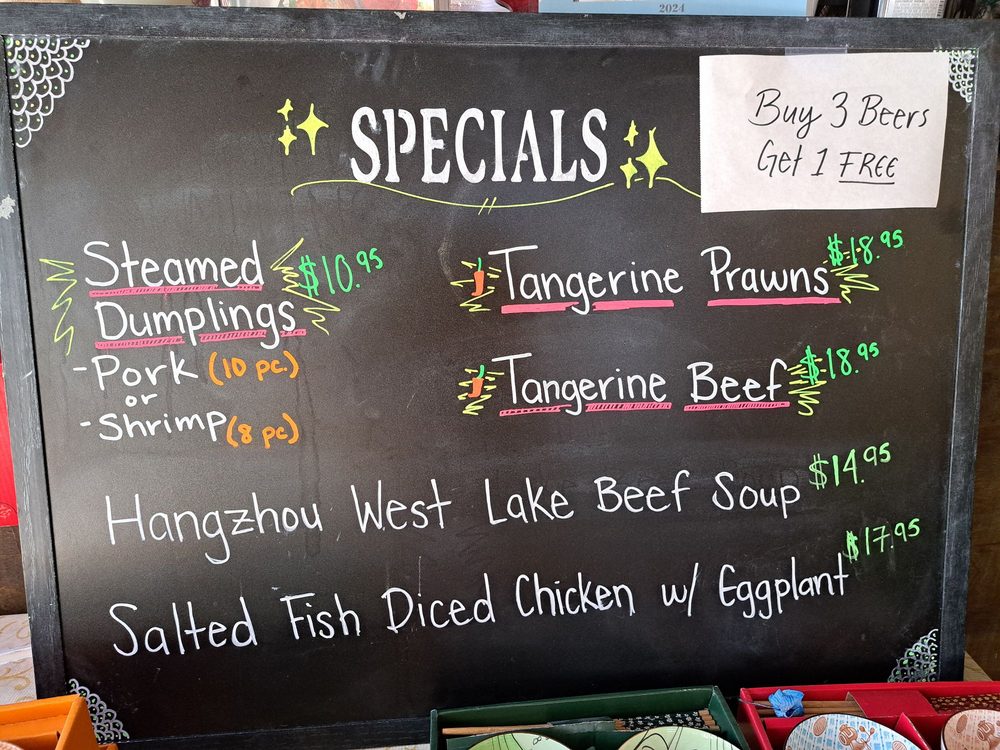 2024
SPECIALS
Buy 3 Beers
Get 1 FREE
Steamed $10.95
Dumplings
- Pork (10 pc.)
or
- Shrimp (8 pc)
Tangerine Prawns $18.95
Tangerine Beef $18.95
Hangzhou West Lake Beef Soup $14.95
Salted Fish Diced Chicken w/ Eggplant $17.95